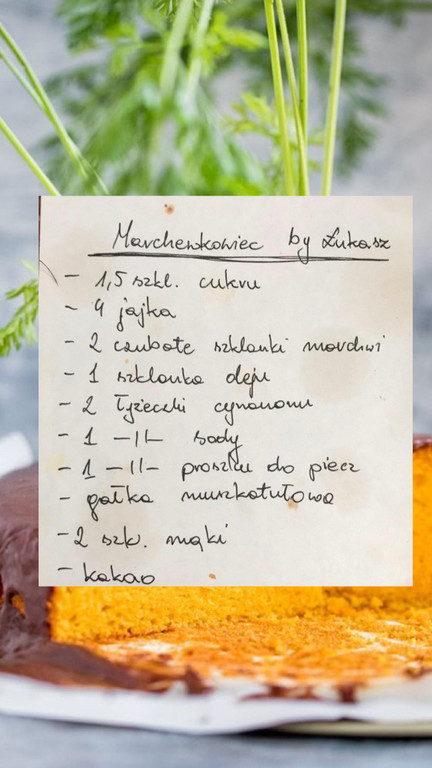 Marchewkowiec by Łukasz
- 1,5 szkl. cukru
- 4 jajka
- 2 czubate szklanki marchwi
- 1 szklanka oleju
- 2 łyżeczki cynamonu
- 1 -||- sody
- 1 -||- proszku do piecz
- gałka muszkatułowa
- 2 szk. mąki
- kakao